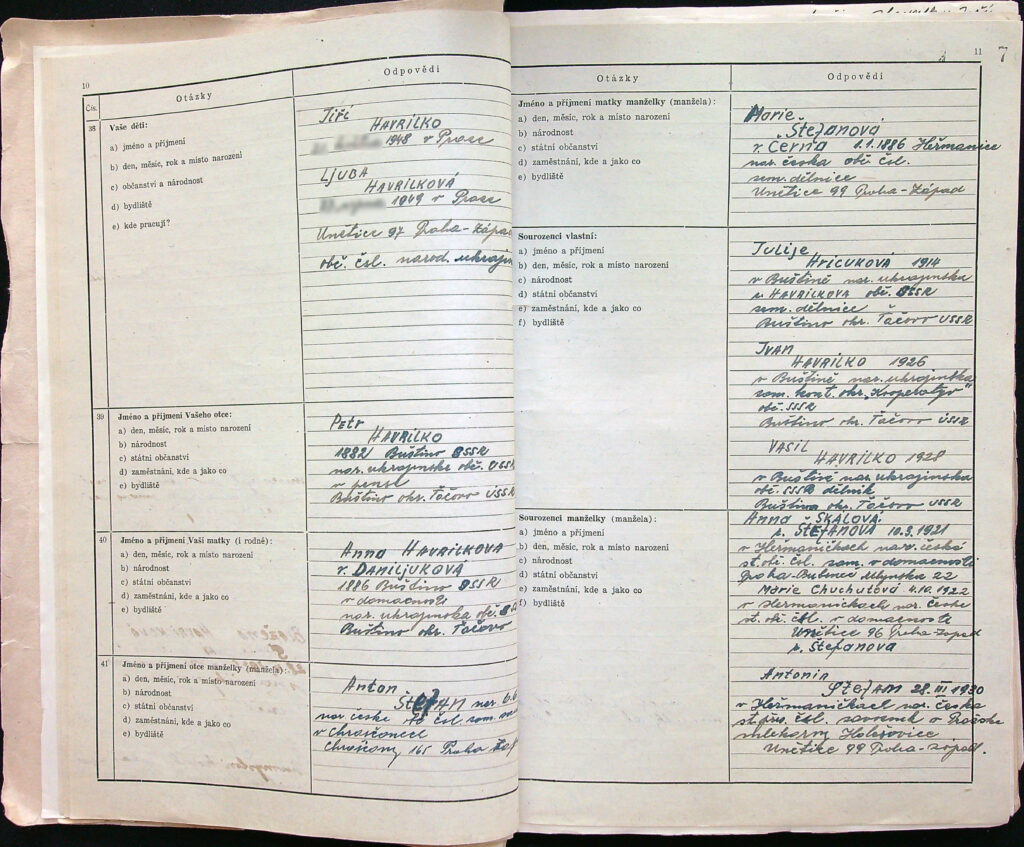 10
Otázky
Odpovědi
Čís.
38
Vaše děti:
a) jméno a příjmení
b) den, měsíc, rok a místo narození
c) občanství a národnost
d) bydliště
e) kde pracují?
Jiří
HAVRILKO
1948 v Praze
LJUBA
HAVRILKOVÁ
1949 v Praze
Únětice 97 Praha-Západ
obč. čsl. národ. ukrajin
39
Jméno a příjmení Vašeho otce:
a) den, měsíc, rok a místo narození
b) národnost
c) státní občanství
d) zaměstnání, kde a jako co
e) bydliště
Petr
HAVRILKO
1882 Buštino SSSR
nar. ukrajinske obč. SSSR
v pensi
Buštino okr. Tačovo USSR
40
Jméno a příjmení Vaší matky (i rodné):
a) den, měsíc, rok a místo narození
b) národnost
c) státní občanství
d) zaměstnání, kde a jako co
e) bydliště
Anna HAVRILKOVA
r. DANILJUKOVÁ
1886 Buštino SSSR
v domacnosti
nar. ukrajinska obč.
Buštino okr. Tačovo
41
Jméno a příjmení otce manželky (manžela):
a) den, měsíc, rok a místo narození
b) národnost
c) státní občanství
d) zaměstnání, kde a jako co
e) bydliště
Anton
ŠtefAN nar
nar české obč čsl
v Chrášťanech
Chrášťany 165 Praha
11
7
Otázky
Odpovědi
Jméno a příjmení matky manželky (manžela):
a) den, měsíc, rok a místo narození
b) národnost
c) státní občanství
d) zaměstnání, kde a jako co
e) bydliště
Marie
Štefanová
r. Černá 1.1.1886 Heřmanice
nar. česka obč. čsl.
zem. dělnice
Unětice 99 Praha-Západ
Sourozenci vlastní:
a) jméno a příjmení
b) den, měsíc, rok a místo narození
c) národnost
d) státní občanství
e) zaměstnání, kde a jako co
f) bydliště
Julije
HRICUKOVÁ 1914
v Buštině nar. ukrajinska
r. HAVRILKOVA obč. SSSR
zem. dělnice
Buštino okr. Tačovo USSR
IVAN
HAVRILKO 1926
v Buštině nar. ukrajinska
okr. "Kooperativ"
obč. SSSR
Buštino okr. Tačovo USSR
VASIL
HAVRILKO 1928
v Buštině nar ukrajinska
obč. SSSR dělnik
Buštino okr. Tačovo USSR
Sourozenci manželky (manžela):
a) jméno a příjmení
b) den, měsíc, rok a místo narození
c) národnost
d) státní občanství
e) zaměstnání, kde a jako co
f) bydliště
Anna ŠKALOVÁ
r. ŠTEFANOVA 10.3.1921
v Heřmaničkach nar. česká
st. obč. čsl. zam. v domacnosti
Praha-Bubenec Mlynska 22
Marie Chuchutová 4.10.1922
v Heřmaničkach nar. české
st. obč. čsl. v domacnosti
Unětice 96 Praha-Západ
r. Štefanova
Antonin
ŠtefAN 28 III 1930
v Heřmaničkach nar. česka
čsl. v Pražské
mlekárny Holešovice
Unětice 99 Praha-západ.